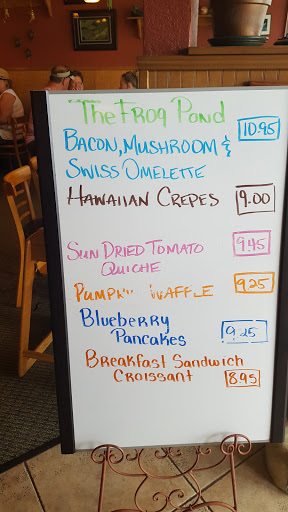 The Frog Pond
Bacon, Mushroom & 10.95
Swiss Omelette
Hawaiian Crepes 9.00
Sun Dried Tomato 9.45
Quiche
Waffle 9.25
Blueberry
Pancakes 9.25
Breakfast Sandwich
Croissant 8.95